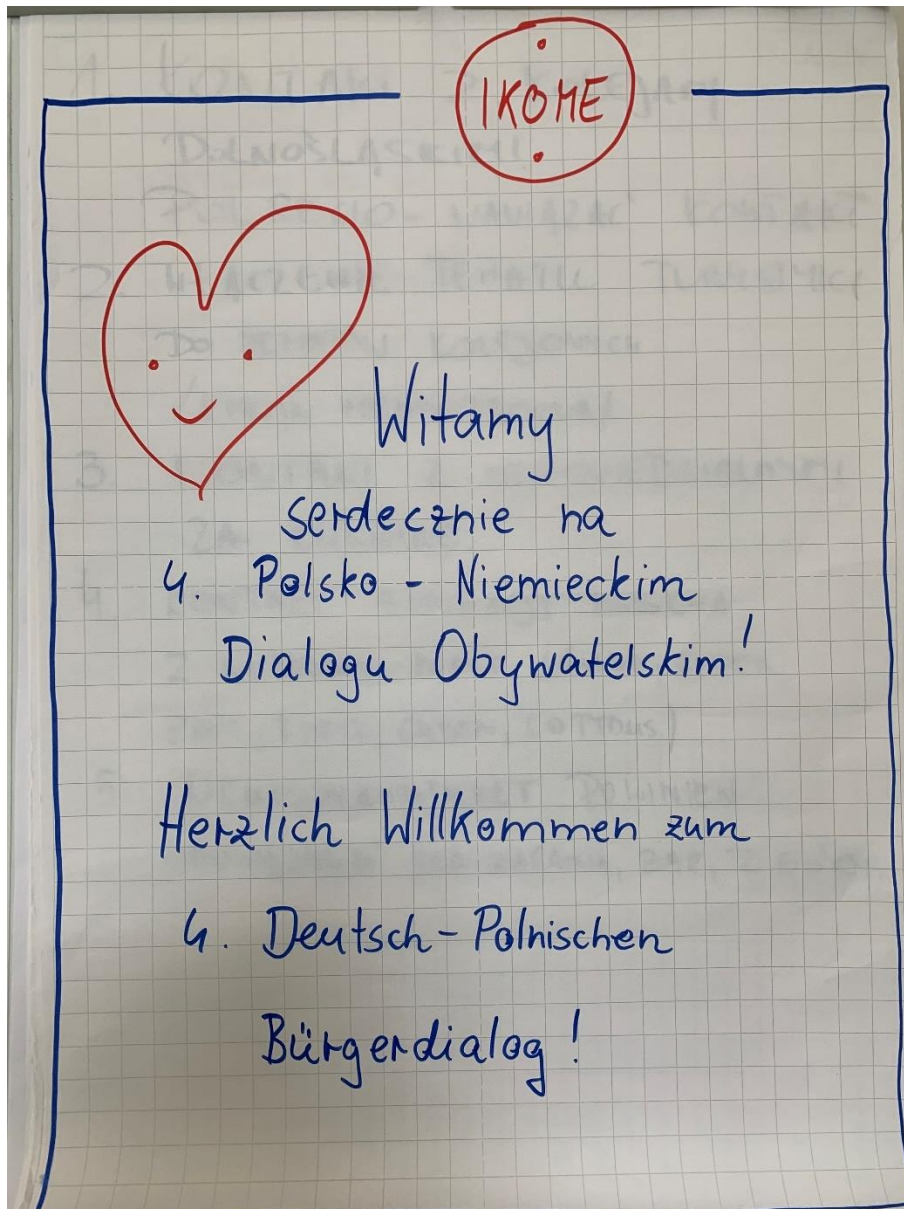 IKOME
Witamy
serdecznie na
4. Polsko - Niemieckim
Dialogu Obywatelskim!
Herzlich Willkommen zum
4. Deutsch - Polnischen
Bürgerdialog!